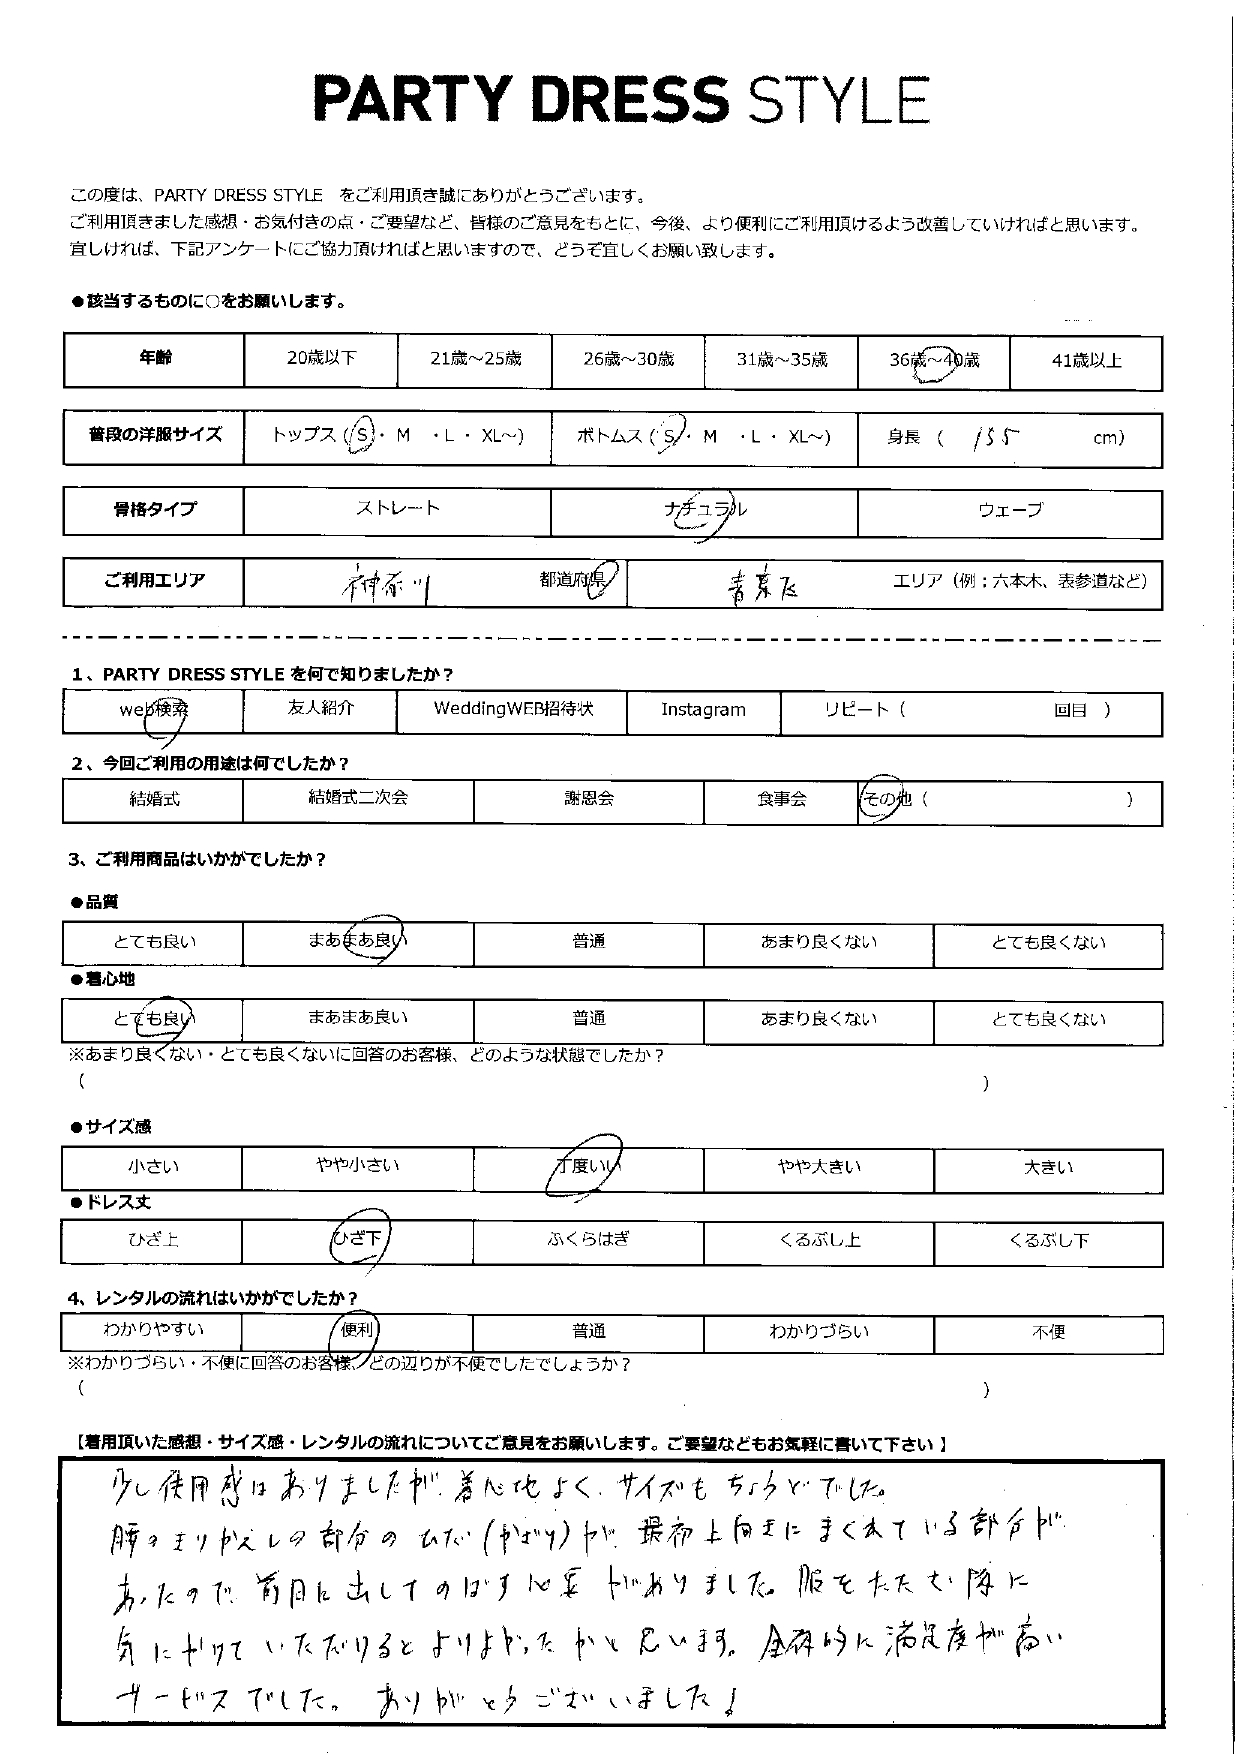 PARTY DRESS STYLE
この度は、PARTY DRESS STYLE をご利用頂き誠にありがとうございます。
ご利用頂きました感想・お気付きの点・ご要望など、皆様のご意見をもとに、今後、より便利にご利用頂けるよう改善していければと思います。
宜しければ、下記アンケートにご協力頂ければと思いますので、どうぞ宜しくお願い致します。
●該当するものに○をお願いします。
年齢 20歳以下 21歳～25歳 26歳～30歳 31歳～35歳 36歳～40歳 41歳以上
普段の洋服サイズ トップス（S・ M ・L ・ XL～） ボトムス（ S・ M ・L ・ XL～） 身長 （ 155 cm）
骨格タイプ ストレート ナチュラル ウェーブ
ご利用エリア 神奈川 都道府県 青葉区 エリア（例：六本木、表参道など）
1、PARTY DRESS STYLE を何で知りましたか？
web検索 友人紹介 WeddingWEB招待状 Instagram リピート（ 回目 ）
2、今回ご利用の用途は何でしたか？
結婚式 結婚式二次会 謝恩会 食事会 その他（ ）
3、ご利用商品はいかがでしたか？
●品質
とても良い まあまあ良い 普通 あまり良くない とても良くない
●着心地
とても良い まあまあ良い 普通 あまり良くない とても良くない
※あまり良くない・とても良くないに回答のお客様、どのような状態でしたか？
（ ）
●サイズ感
小さい やや小さい 丁度いい やや大きい 大きい
●ドレス丈
ひざ上 ひざ下 ふくらはぎ くるぶし上 くるぶし下
4、レンタルの流れはいかがでしたか？
わかりやすい 便利 普通 わかりづらい 不便
※わかりづらい・不便に回答のお客様、どの辺りが不便でしたでしょうか？
（ ）
【着用頂いた感想・サイズ感・レンタルの流れについてご意見をお願いします。ご要望などもお気軽に書いて下さい 】
少し使用感はありましたが、着心地よく、サイズもちょうどでした。
腰のきりかえしの部分のひだ(かざり)が、最初上向きにまくれている部分が
あったので、前日に出してのばす必要がありました。服をたたむ際に
気にかけていただけるとよりよかったかと思います。全体的に満足度が高い
サービスでした。ありがとうございました！